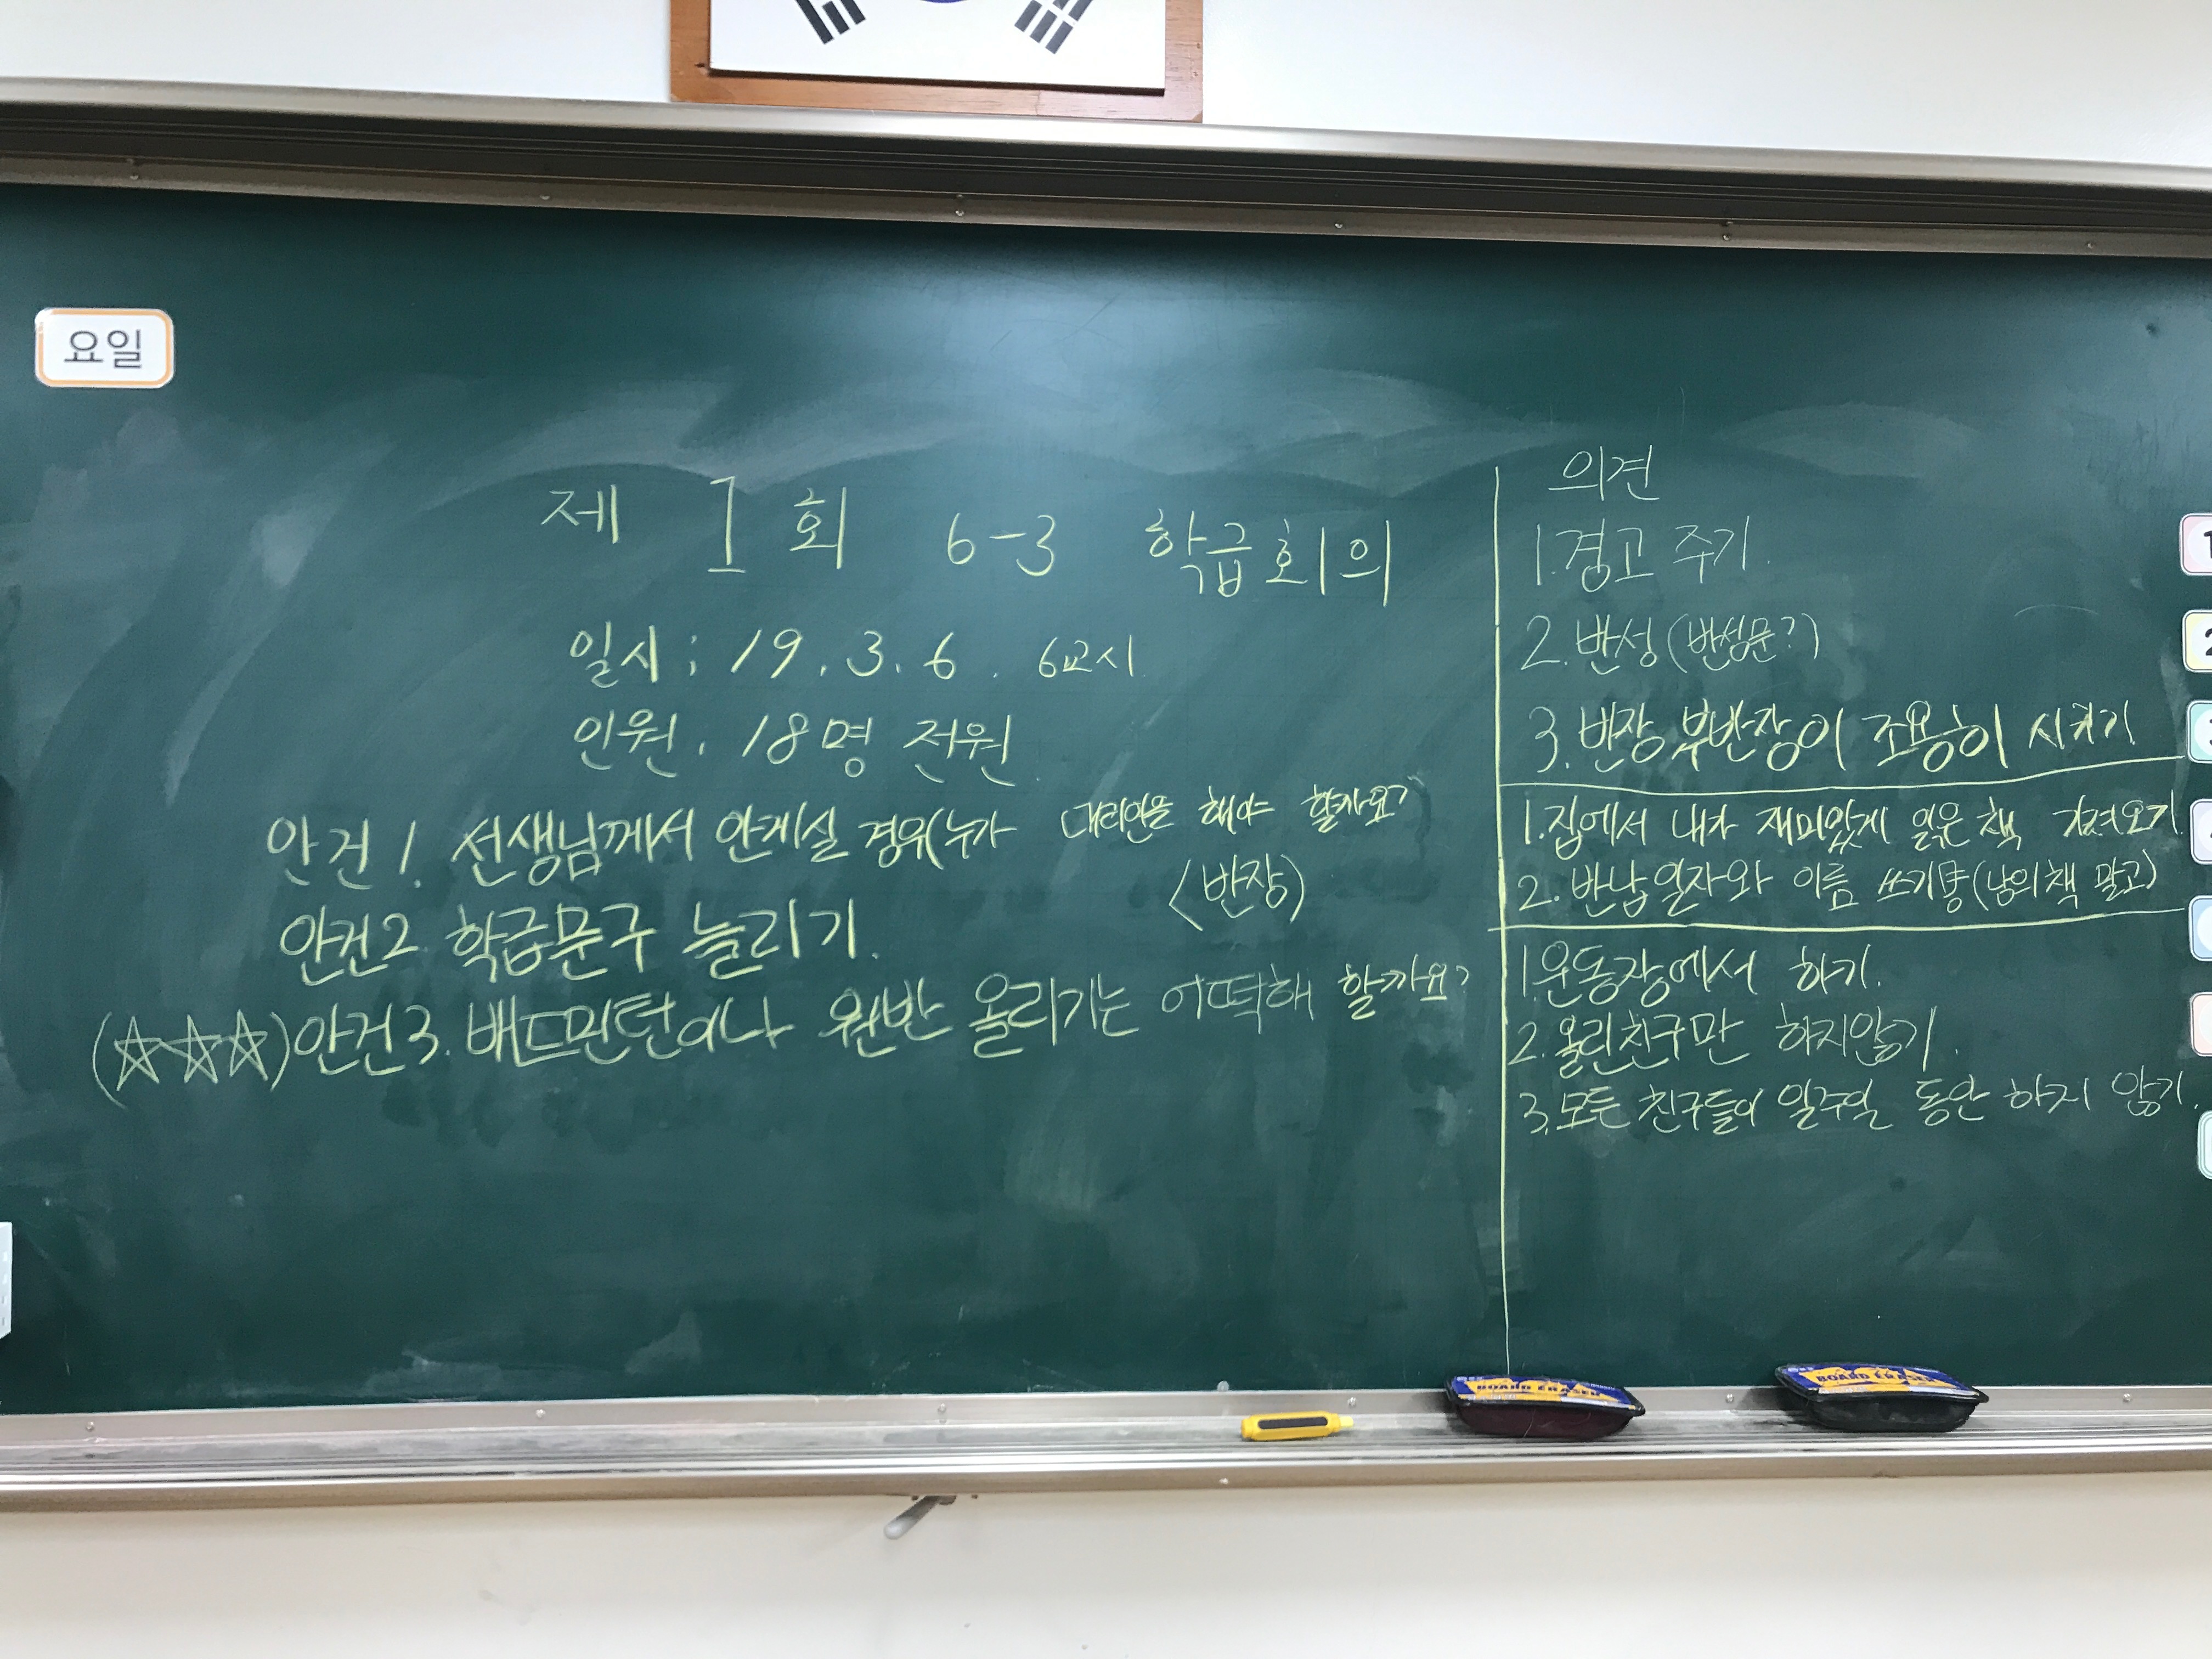 요일
제 1 회 6-3 학급회의
일시; 19. 3. 6. 6교시
인원. 18명 전원
안건 1. 선생님께서 안계실 경우(누가 해야 할까요?
<반장)
안건2. 학급문구 늘리기.
(☆☆☆)안건3. 배드민턴이나 원반 올리기는 어떡해 할까요?
의견
1. 경고 주기.
2. 반성(반성문?)
3. 반장, 부반장이 조용히 시키기
1. 집에서 내가 재미있게 읽은 책 가져오기.
2. 반납일자와 이름 쓰기(남의 책 말고)
1. 운동장에서 하기.
2. 올린친구만 하지않기.
3. 모든 친구들이 일주일 동안 하지 않기.
1
2
BOARD ERASER
BOARD ERASER